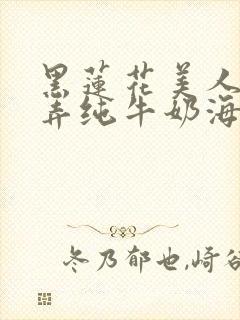 黑莲花美人
弄纯牛奶海
冬乃郁也,崎谷